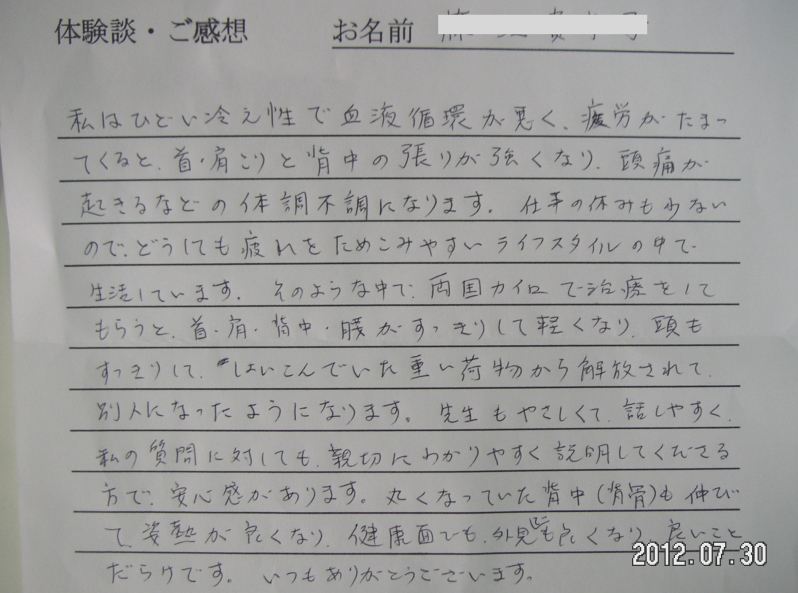 体験談・ご感想 お名前
私はひどい冷え性で血液循環が悪く、疲労がたまっ
てくると、首・肩こりと背中の張りが強くなり、頭痛が
起きるなどの体調不調になります。仕事の休みも少ない
ので、どうしても疲れをためこみやすいライフスタイルの中で
生活しています。そのような中で、両国カイロで治療をして
もらうと、首・肩・背中・腰がすっきりして軽くなり、頭も
すっきりして、しょいこんでいた重い荷物から解放されて、
別人になったようになります。先生もやさしくて、話しやすく、
私の質問に対しても、親切にわかりやすく説明してくださる
方で、安心感があります。丸くなっていた背中(背骨)も伸び
て、姿勢が良くなり、健康面でも、外見的にも良くなり、良いこと
だらけです。いつもありがとうございます。
2012.07.30